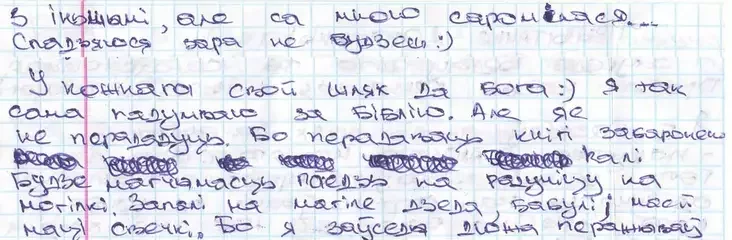 З іншымі, але са мною саромілася...
Спадзяюся зара не будзеш:)
У кожнага свой шлях да Бога:) Я так
сама падумваю за Біблію. Але яе
не перададуць. Бо перадаваць кнігі забаронена
калі
Будзе магчымасць поедзь на радуніцу на
могілкі. Запалі на магіле дзеда, бабулі і маей
маці свечкі. Бо я заўседы дужа перажываў